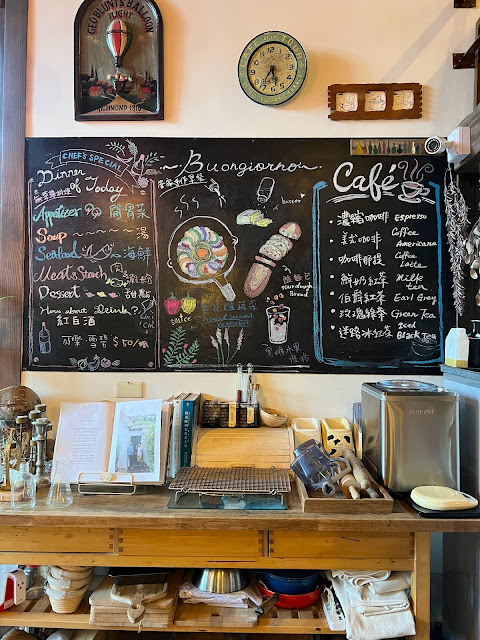 GEO BLUNT'S BALLOON
FLIGHT
RICHMOND 1810
CHEF'S SPECIAL
Dinner
of Today
Appetizer 開胃菜
Soup ~~~~ 湯
Seafood 海鮮
Meat & Starch
Dessert 甜點
How about Drink?
紅白酒
$50/杯
~Buongiorno~
butter
sourdough
Bread
sauce
Café
濃縮咖啡 Espresso
美式咖啡 Coffee Americano
咖啡那堤 Coffee Latte
鮮奶紅茶 Milk tea
伯爵紅茶 Earl Grey
玫瑰綠茶 Green Tea
迷路冰紅茶 Iced Black Tea